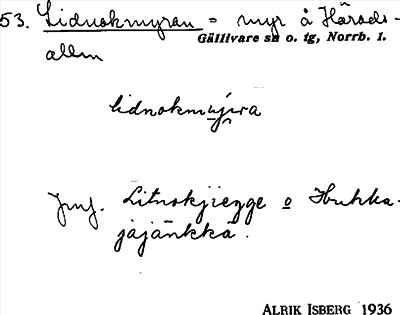 53. Lidnokmyran = myr å Härads-
Gällivare sn o. tg, Norrb. l.
allm
lidnokmụjira
Jmf. Litnokjiegge o Huhka-
jajänkkä.
ALRIK ISBERG 1936